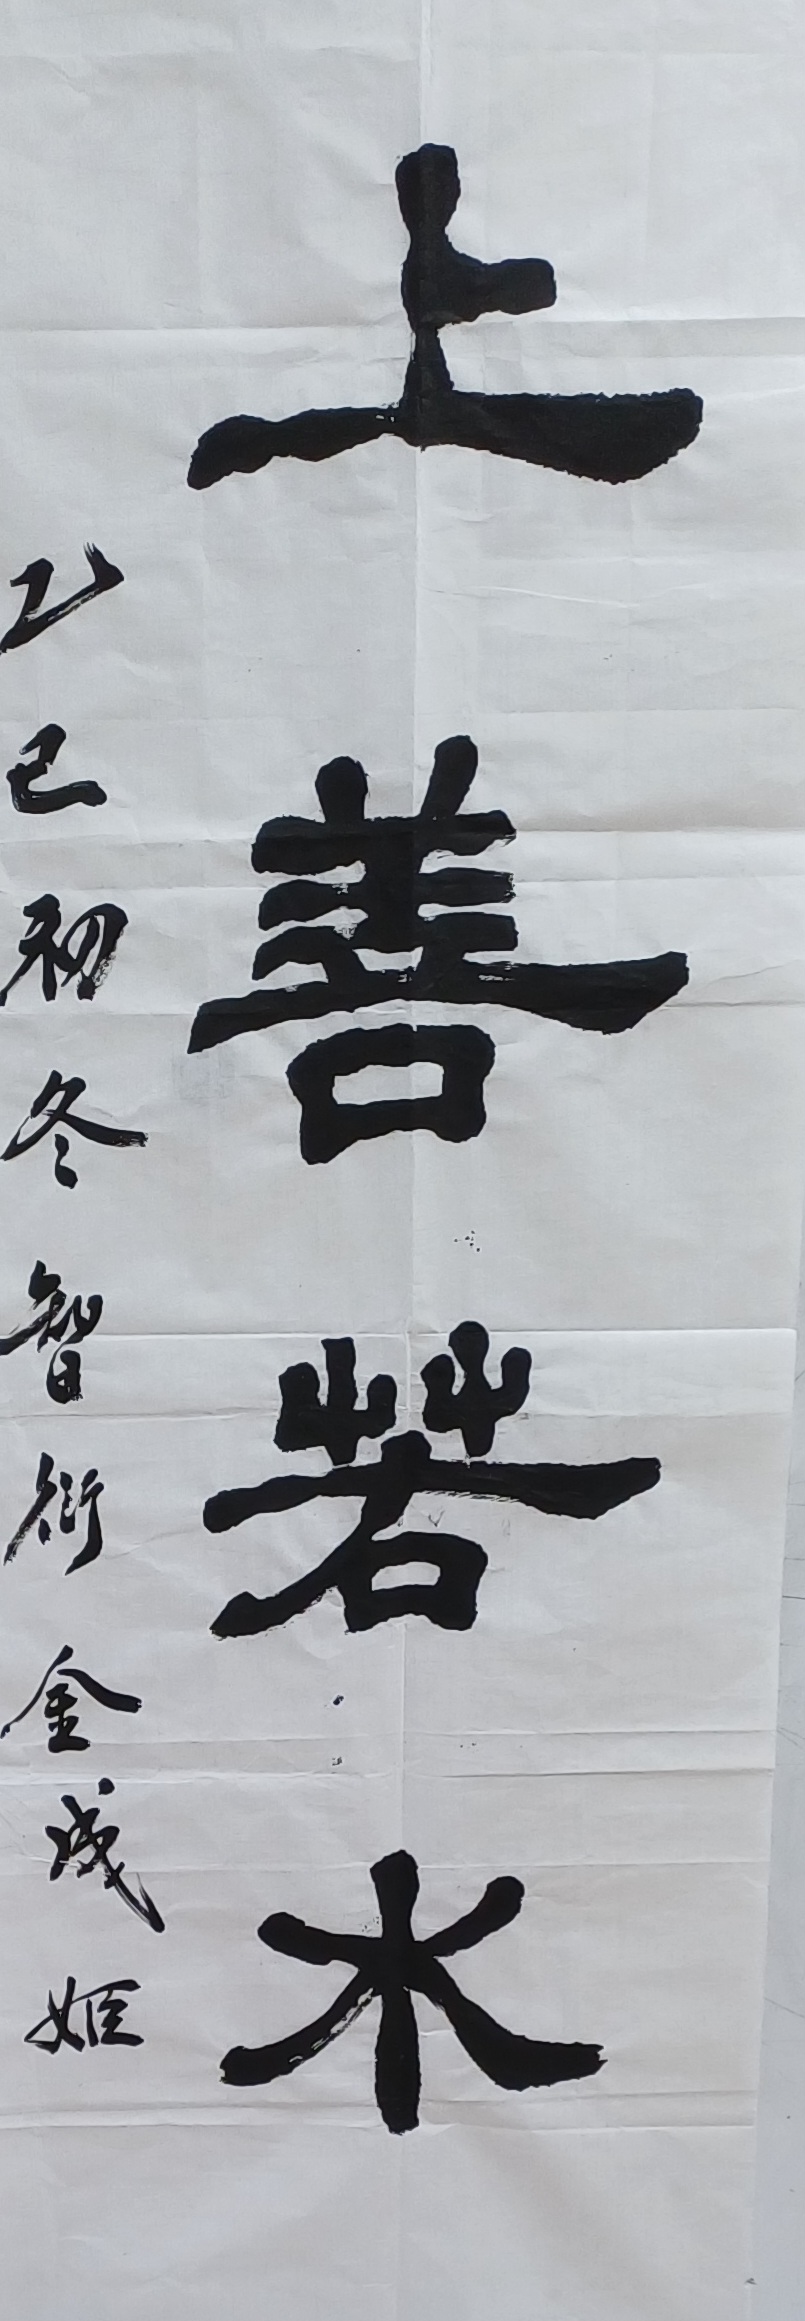 上善若水
乙巳初冬智衍金成姬